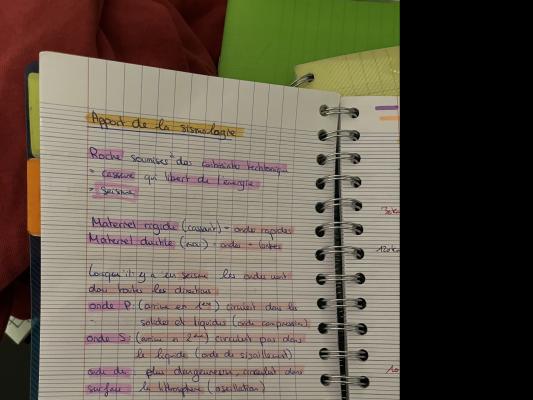 Apport de la sismologie
Roche soumises à des contrainte techtonique
= cassure qui libert de l'énergie
= seisme
Materiel rigide (cassant) = onde rapides
Materiel ductile (mou) = ondes + lentes
Lorsqu'il y a un seisme les onde vont
dans toutes les directions
onde P: (arrive en 1ère) circulent dans les
solides et liquides (onde compression)
onde S: (arrive n 2ème) circulent pas dans
le liquide (onde de sisaillement)
onde de plus dangereuse circulent dans
surface la lithosphère (oscillation)
120km